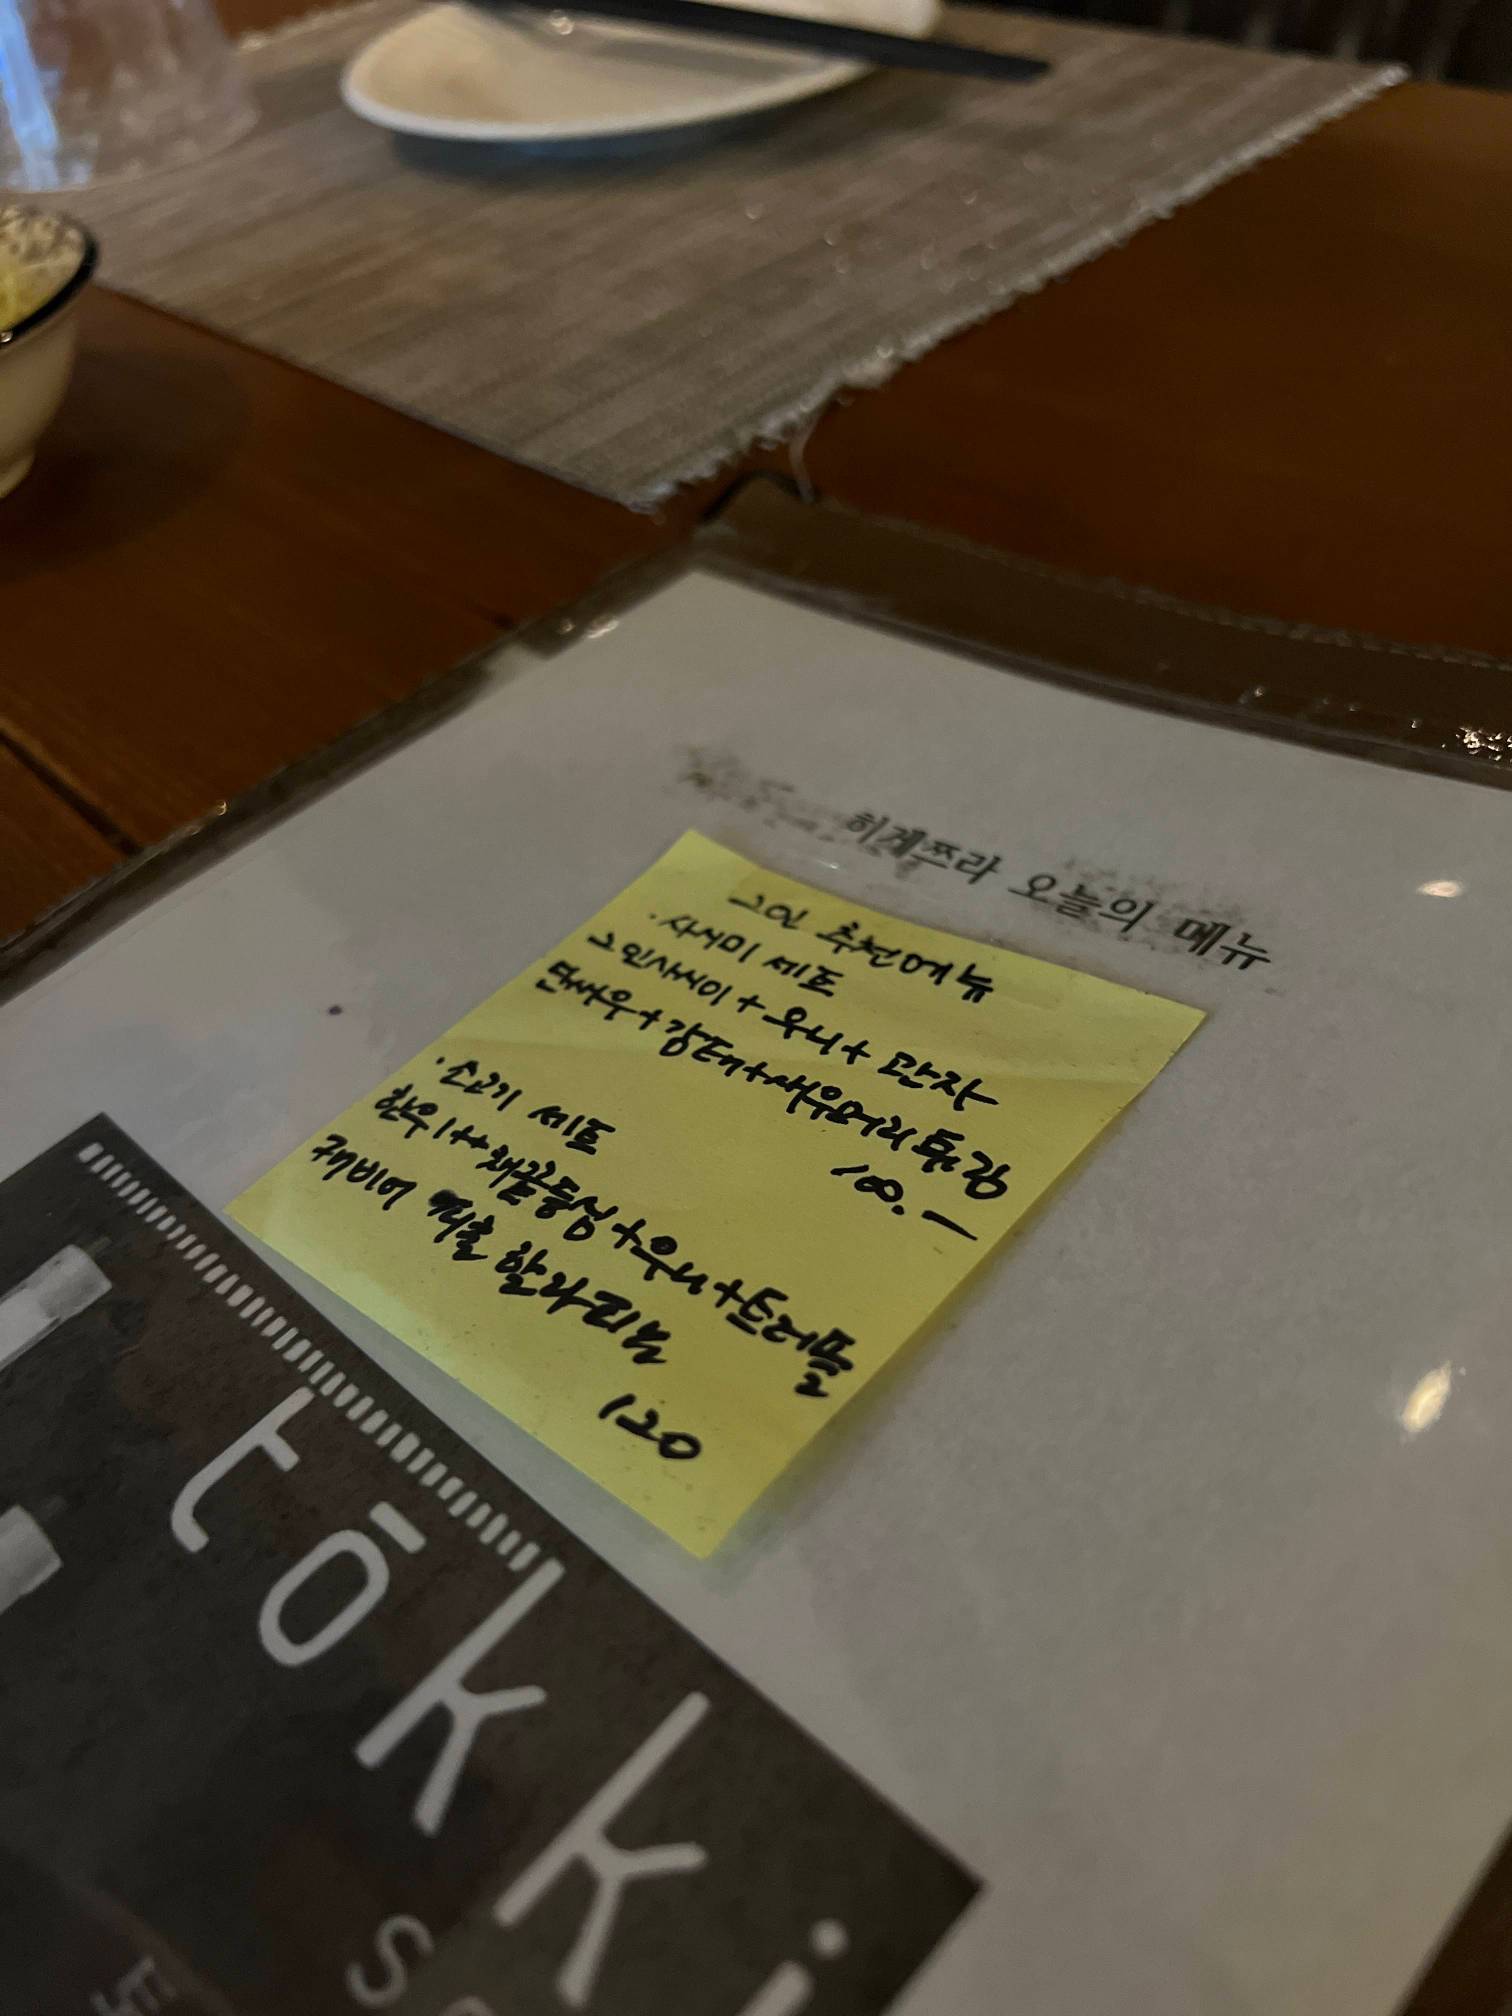 히게쯔라 오늘의 메뉴
2인 추천메뉴
· 사시미 세트
2인사시미 + 우니 + 관자
단새우 + 감태 + 새우머리튀김
100.-
· 소고기 세트
한우 1++ 채끝등심 + 우니 + 트러플
캐비어 할라피뇨
120
tōkki
s